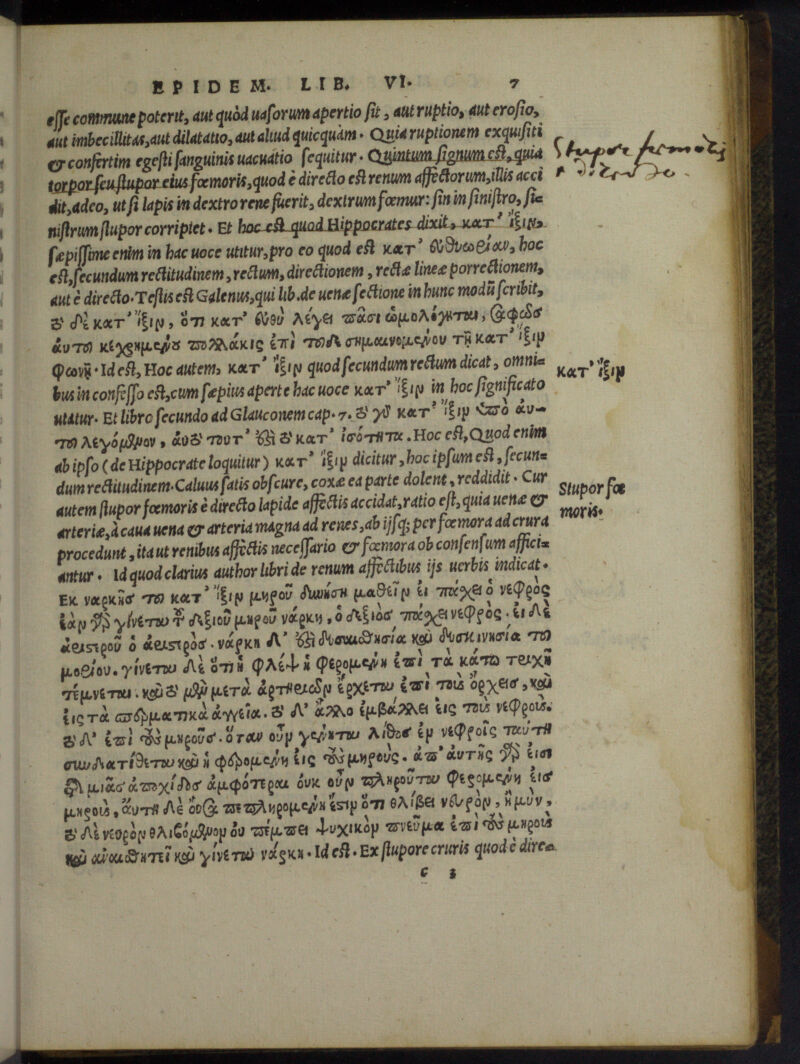 EPIDEM. LIB. VI. 7
esse commune poterit, aut quòd uasorum apertio fit, aut ruptio, aut erosio,
aut imbecillitas, aut dilatatio, aut aliud quicquàm. Quia ruptionem exquisiti
& confertim egesti sanguinis uacuatio sequitur. Quintum signum est, quia
torpor seu stupor eius fœmoris, quod è directo est renum affectorum, illis acci
dit, adeo, ut si lapis in dextro rene fuerit, dextrum fœmur: sin in sinistro, si=
nistrum stupor corripiet. Et hoc est quod Hippocrates dixit, κατ' ἴξιν,
sæpissime enim in hac uoce utitur, pro eo quod est κατ' εὐθυωρίαν, hoc
est, secundum rectitudinem, rectum, directionem, rectæ lineæ porrectionem,
aut è directo. Testis est Galenus, qui lib. de uenæ sectione in hunc modũ scribit,
ὁ δὲ κατ' ἴξιν, ὅτι κατ' εὐθὺ λέγει πᾶσι ὡμολόγηται, σαφῶς
αὐτοῦ κέχρημένου πολλάκις ἐπὶ τοῦ σημαινομένου τῇ κατ' ἴξιν
φωνῇ. Id est, Hoc autem, κατ' ἴξιν quod secundum rectum dicat, omni=
bus in confesso est, cum sæpius aperte hac uoce κατ' ἴξιν in hoc significato
utatur. Et libro secundo ad Glauconem cap. 7. ὁ γὰρ κατ' ἴξιν ὑπὸ αὐ-
τοῦ λεγόμενον, αὐὸ τουτ' ἐστὶ ὁ κατ' ἰσότητα. Hoc est, Quod enim
ab ipso (de Hippocrate loquitur) κατ' ἴξιν dicitur, hoc ipsum est, secun=
dum rectitudinem. Caluus satis obscure, coxæ ea parte dolent, reddidit. Cur
autem stupor fœmoris è directo lapide affectis accidat, ratio est, quia uenæ &
arteriæ, à caua uena & arteria magna ad renes, ab ijsq; per fœmora ad crura
procedunt, ita ut renibus affectis necessario & fœmora ob consensum affici=
antur. Id quod clarius author libri de renum affectibus ijs uerbis indicat.
Ἐκ ναρκῆς τοῦ κατ' ἴξιν μηροῦ δυνήσῃ μαθεῖν εἰ πάχει ὁ νεφρὸς
ἐὰν γὰρ γίνεται τοῦ δεξιοῦ μηροῦ νάρκη, ὁ δεξιὸς πάχει νεφρὸς. εἰ δὲ
ἀειστροῦ ὁ ἀειστρὸς. νάρκη δ' ἐστὶ δυσαισθησία καὶ δυσκινησία τοῦ
μοείου. γίνεται δὲ ὅτι ἡ φλέψ ἡ φερομένη ἐπὶ τὰ κάτω τειχῆ
τέμνεται. καὶ ὁ μὲν μετὰ ἀρτηειῶν ἔρχεται ἐπὶ τοὺς ὄρχεις, καὶ
εἰς τὰ σπερματικὰ ἀγγεῖα. ὁ δ' ἄλλο ἐμβάλλει εἰς τοὺς νεφροὺς.
ὁ δ' ἐπὶ τοὺς μηροὺς. ὅταν οὖν γένηται λίθος ἐν νεφροῖς ταύτῃ
συνδιατίθεται καὶ ἡ φερομένη εἰς τοὺς μηροὺς. ἀπ' αὐτῆς γὰρ εἰσι
διὰ μιᾶς ἀποχίδος ἀμφότεραι οὐκ οὖν πληροῦται φερομένη εἰς
μηροὺς, αὕτη δὲ οὖσα πεπληρομένη ἐστιν ὅτι θλίβει νεῦρον, ἢ μῦν,
ὁ δὲ νεῦρον θλιβόμενον οὐ πέμπει ψυχικὸν πνεῦμα ἐπὶ τοὺς μηροὺς
καὶ ἀναισθητεῖ καὶ γίνεται νάρκη. Id est. Ex stupore cruris quod è dire=
C 3
Stupor femoris
è directo.
κατ' ἴξιν
Stupor fœ
moris.